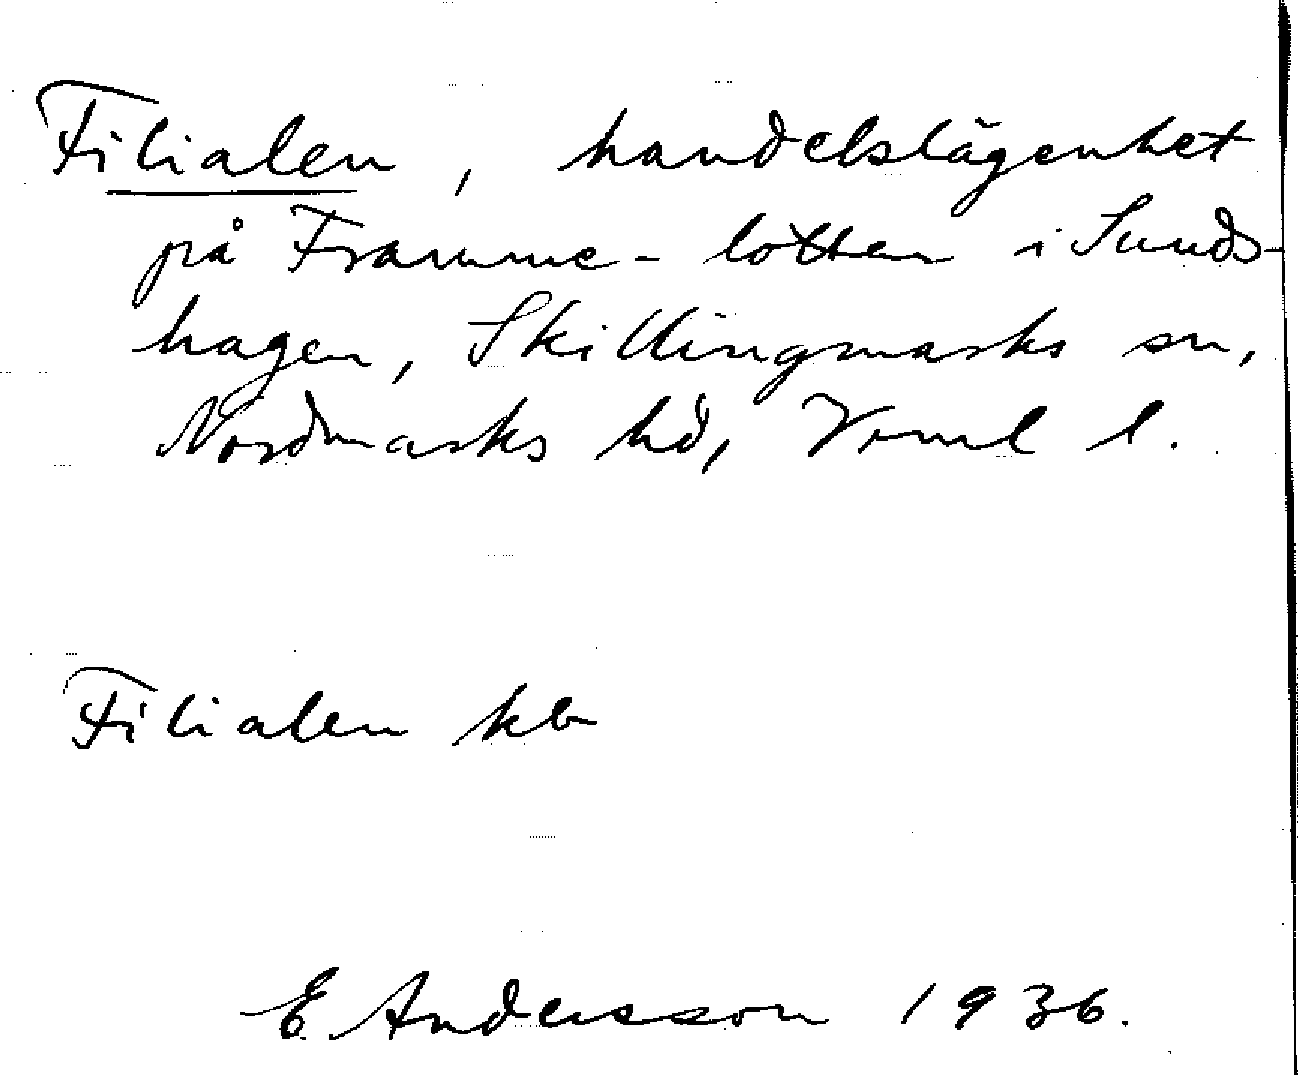 Filialen, handelslägenhet
på Framme-lotten i Sunds-
hagen, Skillingmarks sn,
Nordmarks hd, Verml l.
Filialen kb
E Andersson 1936.